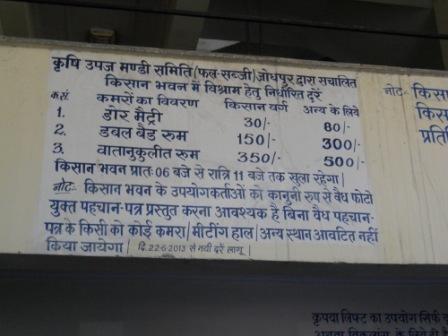 कृषि उपज मण्डी समिति (फल-सब्जी) जोधपुर द्वारा संचालित
किसान भवन में विश्राम हेतु निर्धारित दरें
क्र.सं. कमरों का विवरण किसान वर्ग अन्य के लिये
1. डोर मैट्री 30/- 60/-
2. डबल बैड रूम 150/- 300/-
3. वातानुकुलीत रूम 350/- 500/-
किसान भवन प्रातः 06 बजे से रात्रि 11 बजे तक खुला रहेगा।
नोटः- किसान भवन के उपयोगकर्ताओं को कानुनी रूप से वैध फोटो
युक्त पहचान-पत्र प्रस्तुत करना आवश्यक है बिना वैध पहचान-
पत्र के किसी को कोई कमरा/मीटींग हाल/अन्य स्थान आवंटित नहीं
किया जायेगा। दि. 22-6-2013 से नयी दरें लागू।
नोटः- किसा
किस
प्रति
कृपया लिफ्ट का उपयोग सिर्फ